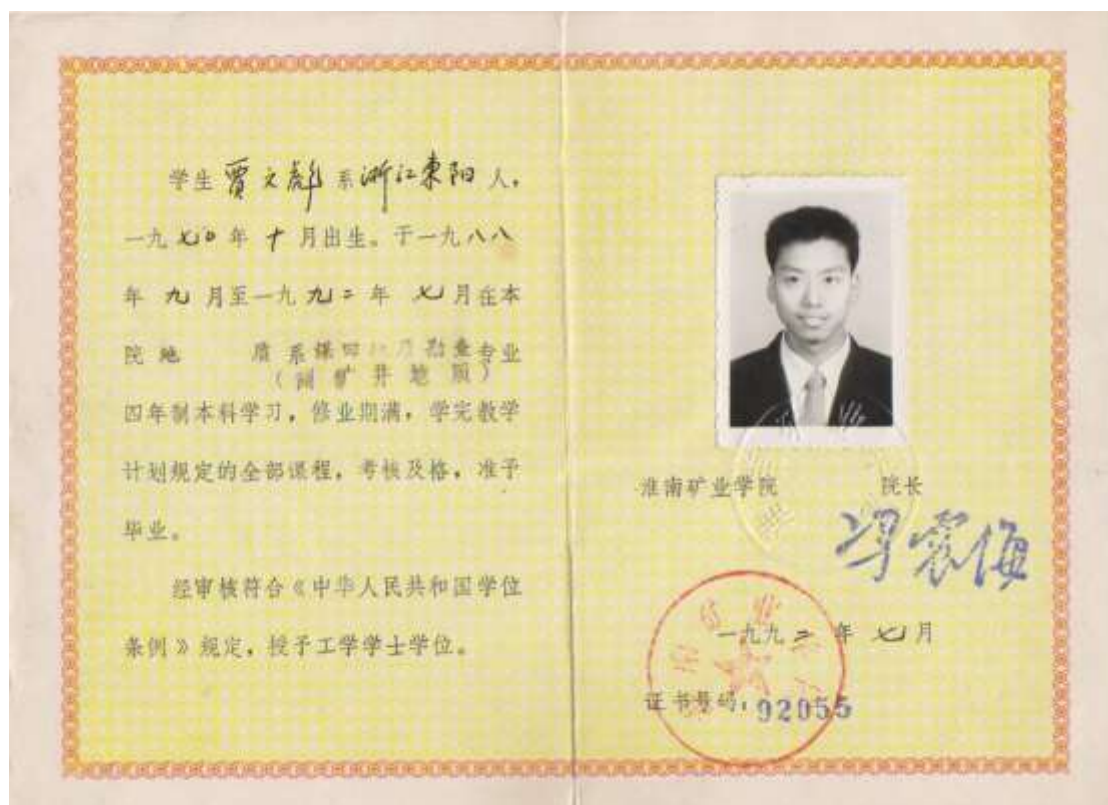 学生 贾文彪 系 浙江东阳 人，
一九七〇年 十 月出生。于一九八八
年 九 月至一九九二年 七 月在本
院地 质系煤田 勘查专业
四年制本科学习，修业期满，学完教学
计划规定的全部课程，考核及格，准予
毕业。
经审核符合《中华人民共和国学位
条例》规定，授予工学学士学位。
淮南矿业学院 院长
冯震海
一九九二年 七 月
证书号码：92055